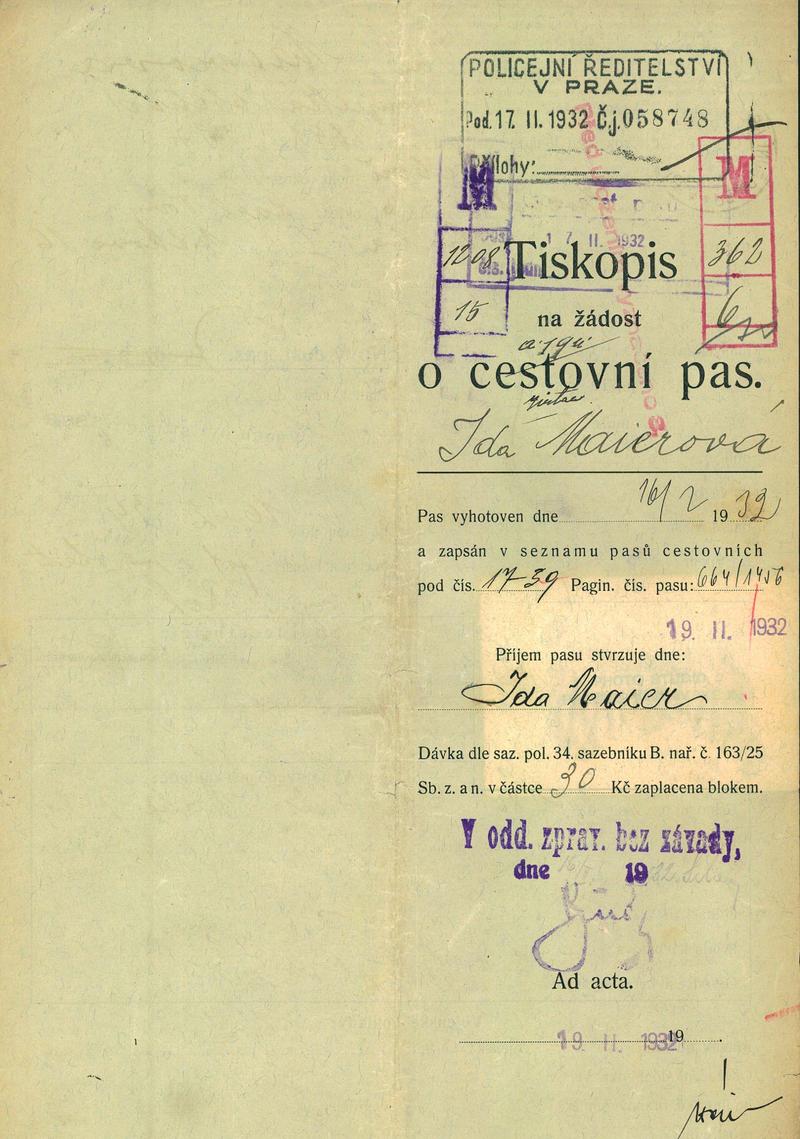 POLICEJNÍ ŘEDITELSTVÍ
V PRAZE.
Pod. 17. II. 1932 Č.j. 058748
Přílohy:
M
M
17. II. 1932
1208 Tiskopis 362
15 na žádost 6
o cestovní pas.
Ida Maierová
Pas vyhotoven dne 16/2 1932
a zapsán v seznamu pasů cestovních
pod čís. 1739 Pagin. čís. pasu: 664/1456
19. II. 1932
Příjem pasu stvrzuje dne:
Ida Maier
Dávka dle saz. pol. 34. sazebníku B. nař. č. 163/25
Sb. z. a n. v částce 30 Kč zaplacena blokem.
V odd. zprav. bez závady,
dne 19
Ad acta.
19. II. 1932 19